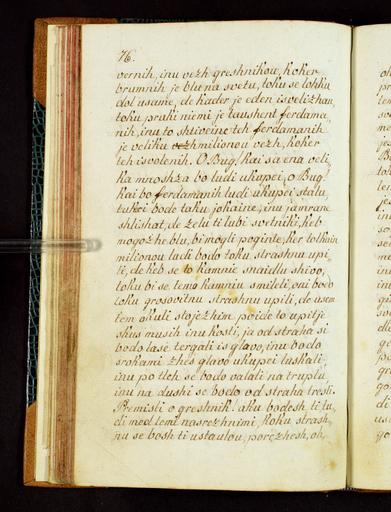 76.
vernih, inu vezh greshnikou, koker
brumnih je blu na svetu, toku se lohku
dol usame, de kader je eden isvelizhan,
toku prahi niemi je taushent ferdama
nih, inu to shtiveine teh ferdamanih
je veliku vezhmilionou vezh, koker
teh isvolenih. O Bug! kai sa ena veli
ka mnoshza bo ludi ukupei, o Bug!
kai bo ferdamanih ludi ukupei stalu,
tulkei bode taku jokaine, inu jamrane
shlishat, de Zeli ti lubi svetniki, keb
mogozhe blu, bi mogli poginte, ker tolkain
milionou ludi bodo toku strashnu upi
ti, de keb se to kamnie snaidlu shivo,
toku bi se temu kamniu smileli, oni bodo
toku grosovitnu strashnu upili, de usem
tem okuli stojezhim poide to upitje
skus musih inu kosti, ja od straha si
bodo lase tergali is glavo, inu bodo
srokami zhes glavo ukupei tuskali,
inu po tleh se bodo valali na truplu
inu na dushi se bodo od straha tresli.
Premisli o greshnik! aku bodesh ti tu
di med temi nasrezhnimi, koku strash
nu se bosh ti ustaulou, porezhesh, oh,